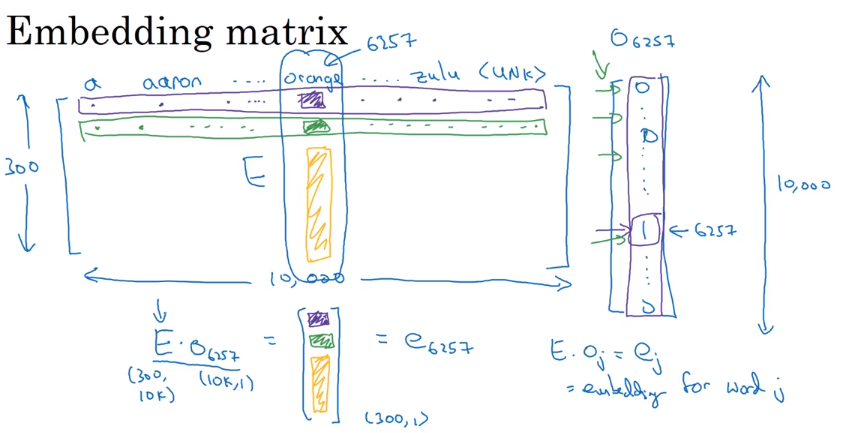 Embedding matrix
6257
O6257
a aaron ..... orange ..... zulu <UNK>
0
0
300
E
10,000
1
← 6257
10,000
0
E · O6257 = = e6257
(300, 10K) (10K, 1)
(300, 1)
E . Oj = ej
= embedding for word j